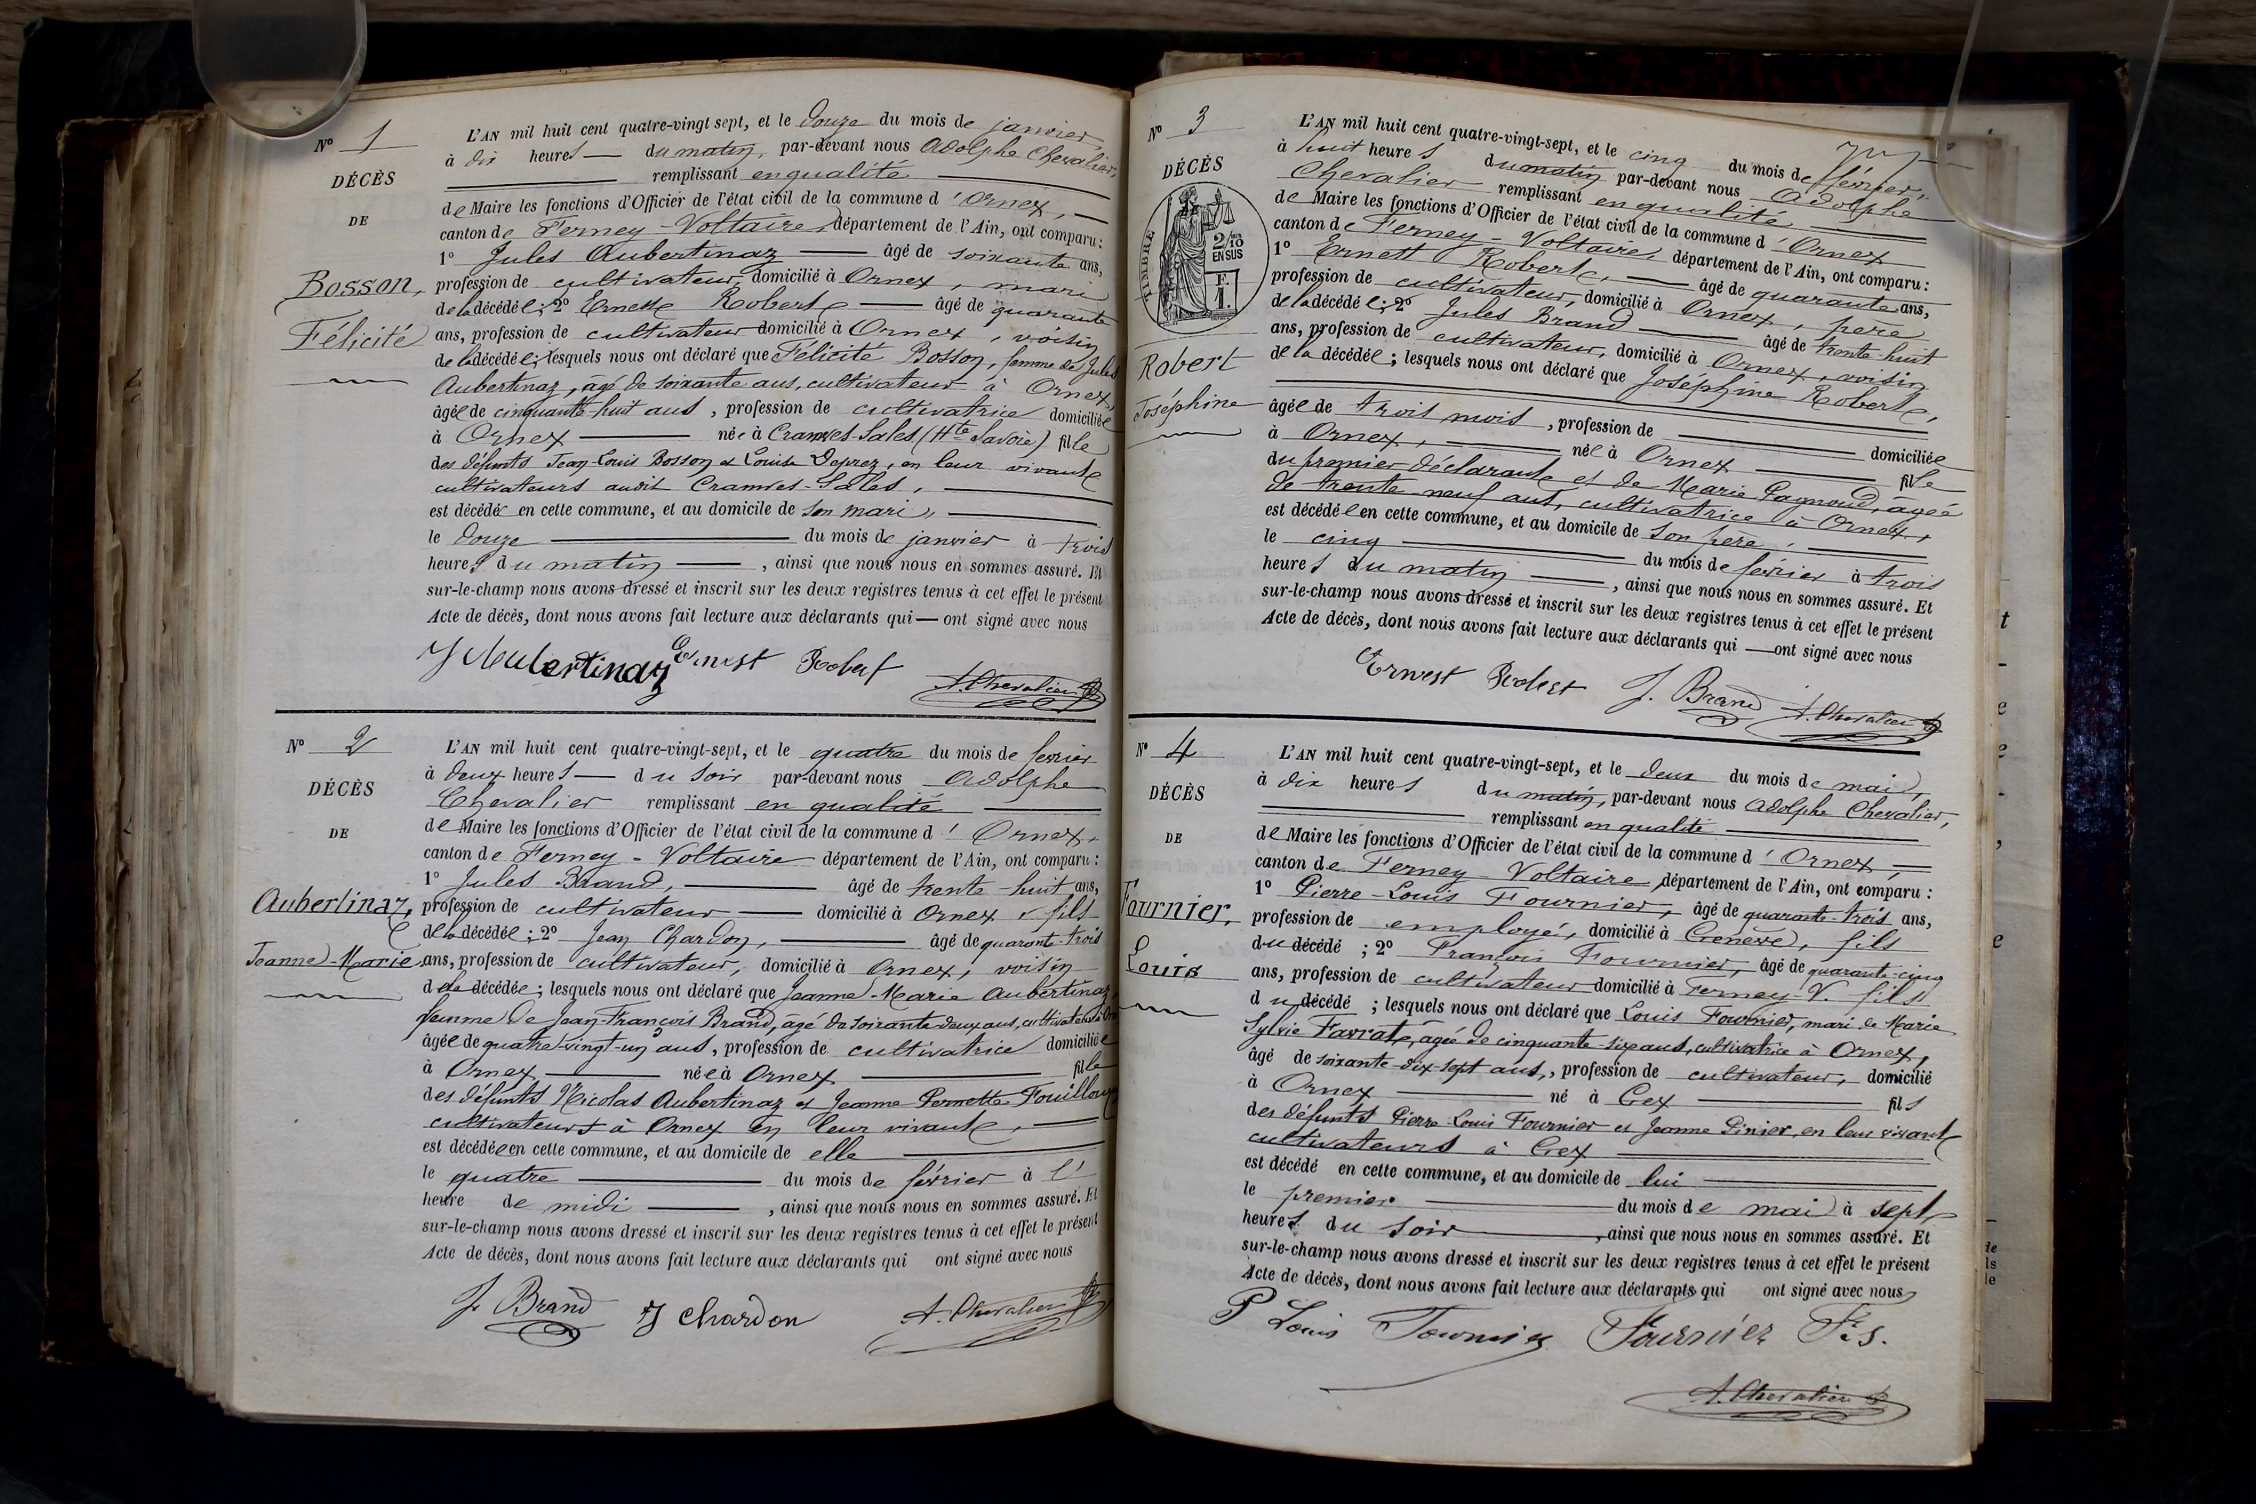 N° 1
DÉCÈS
DE
Bosson,
Félicité
L'AN mil huit cent quatre-vingt sept, et le douze du mois de janvier,
à dix heures du matin, par-devant nous Adolphe Chevalier,
remplissant en qualité
de Maire les fonctions d'Officier de l'état civil de la commune d'Ornex,
canton de Ferney-Voltaire, département de l'Ain, ont comparu :
1° Jules Aubertinaz âgé de soixante ans,
profession de cultivateur, domicilié à Ornex, mari
de la décédée ; 2° Ernest Robert âgé de quarante
ans, profession de cultivateur domicilié à Ornex, voisin
de la décédée ; lesquels nous ont déclaré que Félicité Bosson, femme de Jules
Aubertinaz, âgé de soixante ans, cultivateur à Ornex,
âgée de cinquante-huit ans, profession de cultivatrice domiciliée
à Ornex née à Cranves-Sales (Hte Savoie) fille
des défunts Jean Louis Bosson et Louise Deprez, en leur vivant
cultivateurs audit Cranves-Sales,
est décédée en cette commune, et au domicile de son mari,
le douze du mois de janvier à trois
heures du matin, ainsi que nous nous en sommes assuré. Et
sur-le-champ nous avons dressé et inscrit sur les deux registres tenus à cet effet le présent
Acte de décès, dont nous avons fait lecture aux déclarants qui ont signé avec nous
J Aubertinaz Ernest Robert
A. Chevalier
N° 2
DÉCÈS
DE
Aubertinaz,
Jeanne-Marie
L'AN mil huit cent quatre-vingt-sept, et le quatre du mois de fevrier
à deux heures du soir par-devant nous Adolphe
Chevalier remplissant en qualité
de Maire les fonctions d'Officier de l'état civil de la commune d'Ornex,
canton de Ferney-Voltaire département de l'Ain, ont comparu :
1° Jules Brand, âgé de trente-huit ans,
profession de cultivateur domicilié à Ornex, fils
de la décédée ; 2° Jean Chardon, âgé de quarante-trois
ans, profession de cultivateur, domicilié à Ornex, voisin
de la décédée ; lesquels nous ont déclaré que Jeanne-Marie Aubertinaz,
femme de Jean-François Brand, âgé de soixante deux ans, cultivateur à
âgée de quatre-vingt-un ans, profession de cultivatrice domiciliée
à Ornex née à Ornex fille
des défunts Nicolas Aubertinaz et Jeanne Pernette Fouilloux
cultivateurs à Ornex en leur vivant,
est décédée en cette commune, et au domicile de elle
le quatre du mois de février à l'
heure de midi, ainsi que nous nous en sommes assuré. Et
sur-le-champ nous avons dressé et inscrit sur les deux registres tenus à cet effet le présent
Acte de décès, dont nous avons fait lecture aux déclarants qui ont signé avec nous
J. Brand J Chardon A. Chevalier
N° 3
DÉCÈS
TIMBRE
2/10
EN SUS
F.
1.
Robert
Joséphine
L'AN mil huit cent quatre-vingt-sept, et le cinq du mois de février,
à huit heures du matin par-devant nous Adolphe
Chevalier remplissant en qualité
de Maire les fonctions d'Officier de l'état civil de la commune d'Ornex
canton de Ferney-Voltaire, département de l'Ain, ont comparu :
1° Ernest Robert, âgé de quarante ans,
profession de cultivateur, domicilié à Ornex, père
de la décédée ; 2° Jules Brand âgé de trente-huit
ans, profession de cultivateur, domicilié à Ornex, voisin
de la décédée ; lesquels nous ont déclaré que Joséphine Robert,
âgée de trois mois, profession de
à Ornex, née à Ornex domiciliée
du premier déclarant et de Marie fille
de trente neuf ans, cultivatrice à Ornex, âgée
est décédée en cette commune, et au domicile de son père,
le cinq du mois de fevrier à trois
heures du matin, ainsi que nous nous en sommes assuré. Et
sur-le-champ nous avons dressé et inscrit sur les deux registres tenus à cet effet le présent
Acte de décès, dont nous avons fait lecture aux déclarants qui ont signé avec nous
Ernest Robert J. Brand A. Chevalier
N° 4
DÉCÈS
DE
Fournier,
Louis
L'AN mil huit cent quatre-vingt-sept, et le deux du mois de mai,
à dix heures du matin, par-devant nous Adolphe Chevalier,
remplissant en qualité
de Maire les fonctions d'Officier de l'état civil de la commune d'Ornex,
canton de Ferney-Voltaire, département de l'Ain, ont comparu :
1° Pierre-Louis Fournier, âgé de quarante-trois ans,
profession de employé, domicilié à Genève, fils
du décédé ; 2° François Fournier, âgé de quarante-cinq
ans, profession de cultivateur domicilié à Ferney-V. fils
du décédé ; lesquels nous ont déclaré que Louis Fournier, mari de Marie
Sylvie Favrat, âgée de cinquante-six ans, cultivatrice à Ornex,
âgé de soixante-dix-sept ans, profession de cultivateur, domicilié
à Ornex né à Gex fils
des défunts Pierre Louis Fournier et Jeanne Pinier, en leur vivant
cultivateurs à Gex
est décédé en cette commune, et au domicile de lui
le premier du mois de mai à sept
heures du soir, ainsi que nous nous en sommes assuré. Et
sur-le-champ nous avons dressé et inscrit sur les deux registres tenus à cet effet le présent
Acte de décès, dont nous avons fait lecture aux déclarants qui ont signé avec nous
P Louis Fournier Fournier Fs.
A. Chevalier